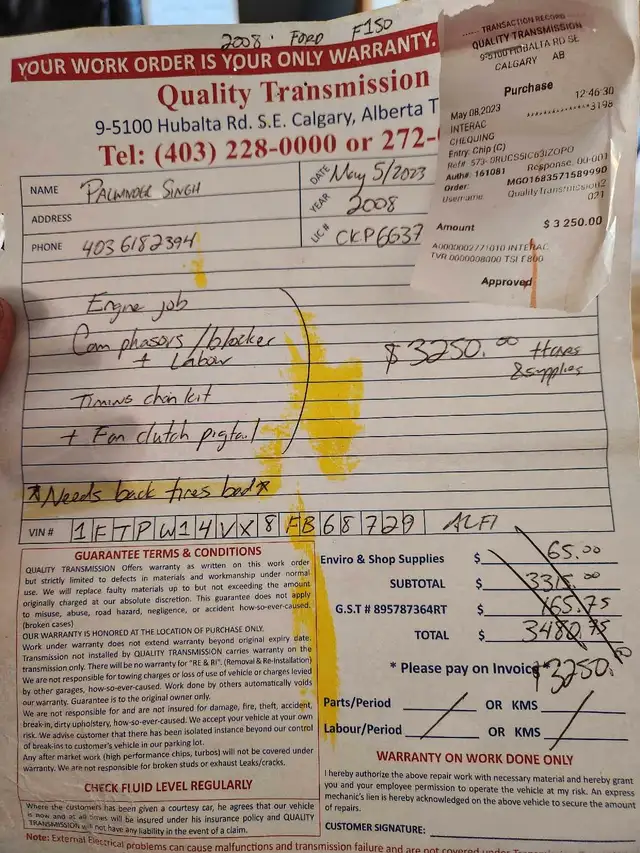 2008 FORD F150
YOUR WORK ORDER IS YOUR ONLY WARRANTY.
Quality Transmission
9-5100 Hubalta Rd. S.E. Calgary, Alberta T
Tel: (403) 228-0000 or 272-
TRANSACTION RECORD
QUALITY TRANSMISSION
9-5100 HUBALTA RD SE
CALGARY AB
Purchase
May 08,2023 12:46:30
INTERAC ************3198
CHEQUING
Entry: Chip (C)
Response: 00-001
Auth#: 161081
Order: MGO1683571589990
Username: QualityTransmission2
021
Amount $ 3 250.00
A0000002771010 INTERAC
TVR 0000008000 TSI E800
Approved
NAME PALWINDER SINGH
DATE May 5/2023
ADDRESS
YEAR 2008
PHONE 403 6182394
LIC # CKP6637
Engine job
Cam phasors/blocker
+ Labour
$3250.00 Taxes
& supplies
Timing chain kit
+ Fan clutch pigtail
*Needs back tires bad*
VIN # 1FTPW14VX8FB68729
GUARANTEE TERMS & CONDITIONS
QUALITY TRANSMISSION Offers warranty as written on this work order
but strictly limited to defects in materials and workmanship under normal
use. We will replace faulty materials up to but not exceeding the amount
originally charged at our absolute discretion. This guarantee does not apply
to misuse, abuse, road hazard, negligence, or accident how-so-ever-caused.
(broken cases)
OUR WARRANTY IS HONORED AT THE LOCATION OF PURCHASE ONLY.
Work under warranty does not extend warranty beyond original expiry date.
Transmission not installed by QUALITY TRANSMISSION carries warranty on the
transmission only. There will be no warranty for "RE & RI". (Removal & Re-Installation)
We are not responsible for towing charges or loss of use of vehicle or charges levied
by other garages, how-so-ever-caused. Work done by others automatically voids
our warranty. Guarantee is to the original owner only.
We are not responsible for and are not insured for damage, fire, theft, accident,
break-in, dirty upholstery, how-so-ever-caused. We accept your vehicle at your own
risk. We advise customer that there has been isolated instance beyond our control
of break-ins to customer's vehicle in our parking lot.
Any after market work (high performance chips, turbos) will not be covered under
warranty. We are not responsible for broken studs or exhaust Leaks/cracks.
CHECK FLUID LEVEL REGULARLY
Where the customers has been given a courtesy car, he agrees that our vehicle
is now and at all times will be insured under his insurance policy and QUALITY
TRANSMISSION will not have any liability in the event of a claim.
Enviro & Shop Supplies $ 65.00
SUBTOTAL $ 3315.00
G.S.T # 895787364RT $ 165.75
TOTAL $ 3480.75
* Please pay on Invoice $3250.00
Parts/Period OR KMS
Labour/Period OR KMS
WARRANTY ON WORK DONE ONLY
I hereby authorize the above repair work with necessary material and hereby grant
you and your employee permission to operate the vehicle at my risk. An express
mechanic's lien is hereby acknowledged on the above vehicle to secure the amount
of repairs.
CUSTOMER SIGNATURE:
Note: External Electrical problems can cause malfunctions and transmission failure and are not covered under